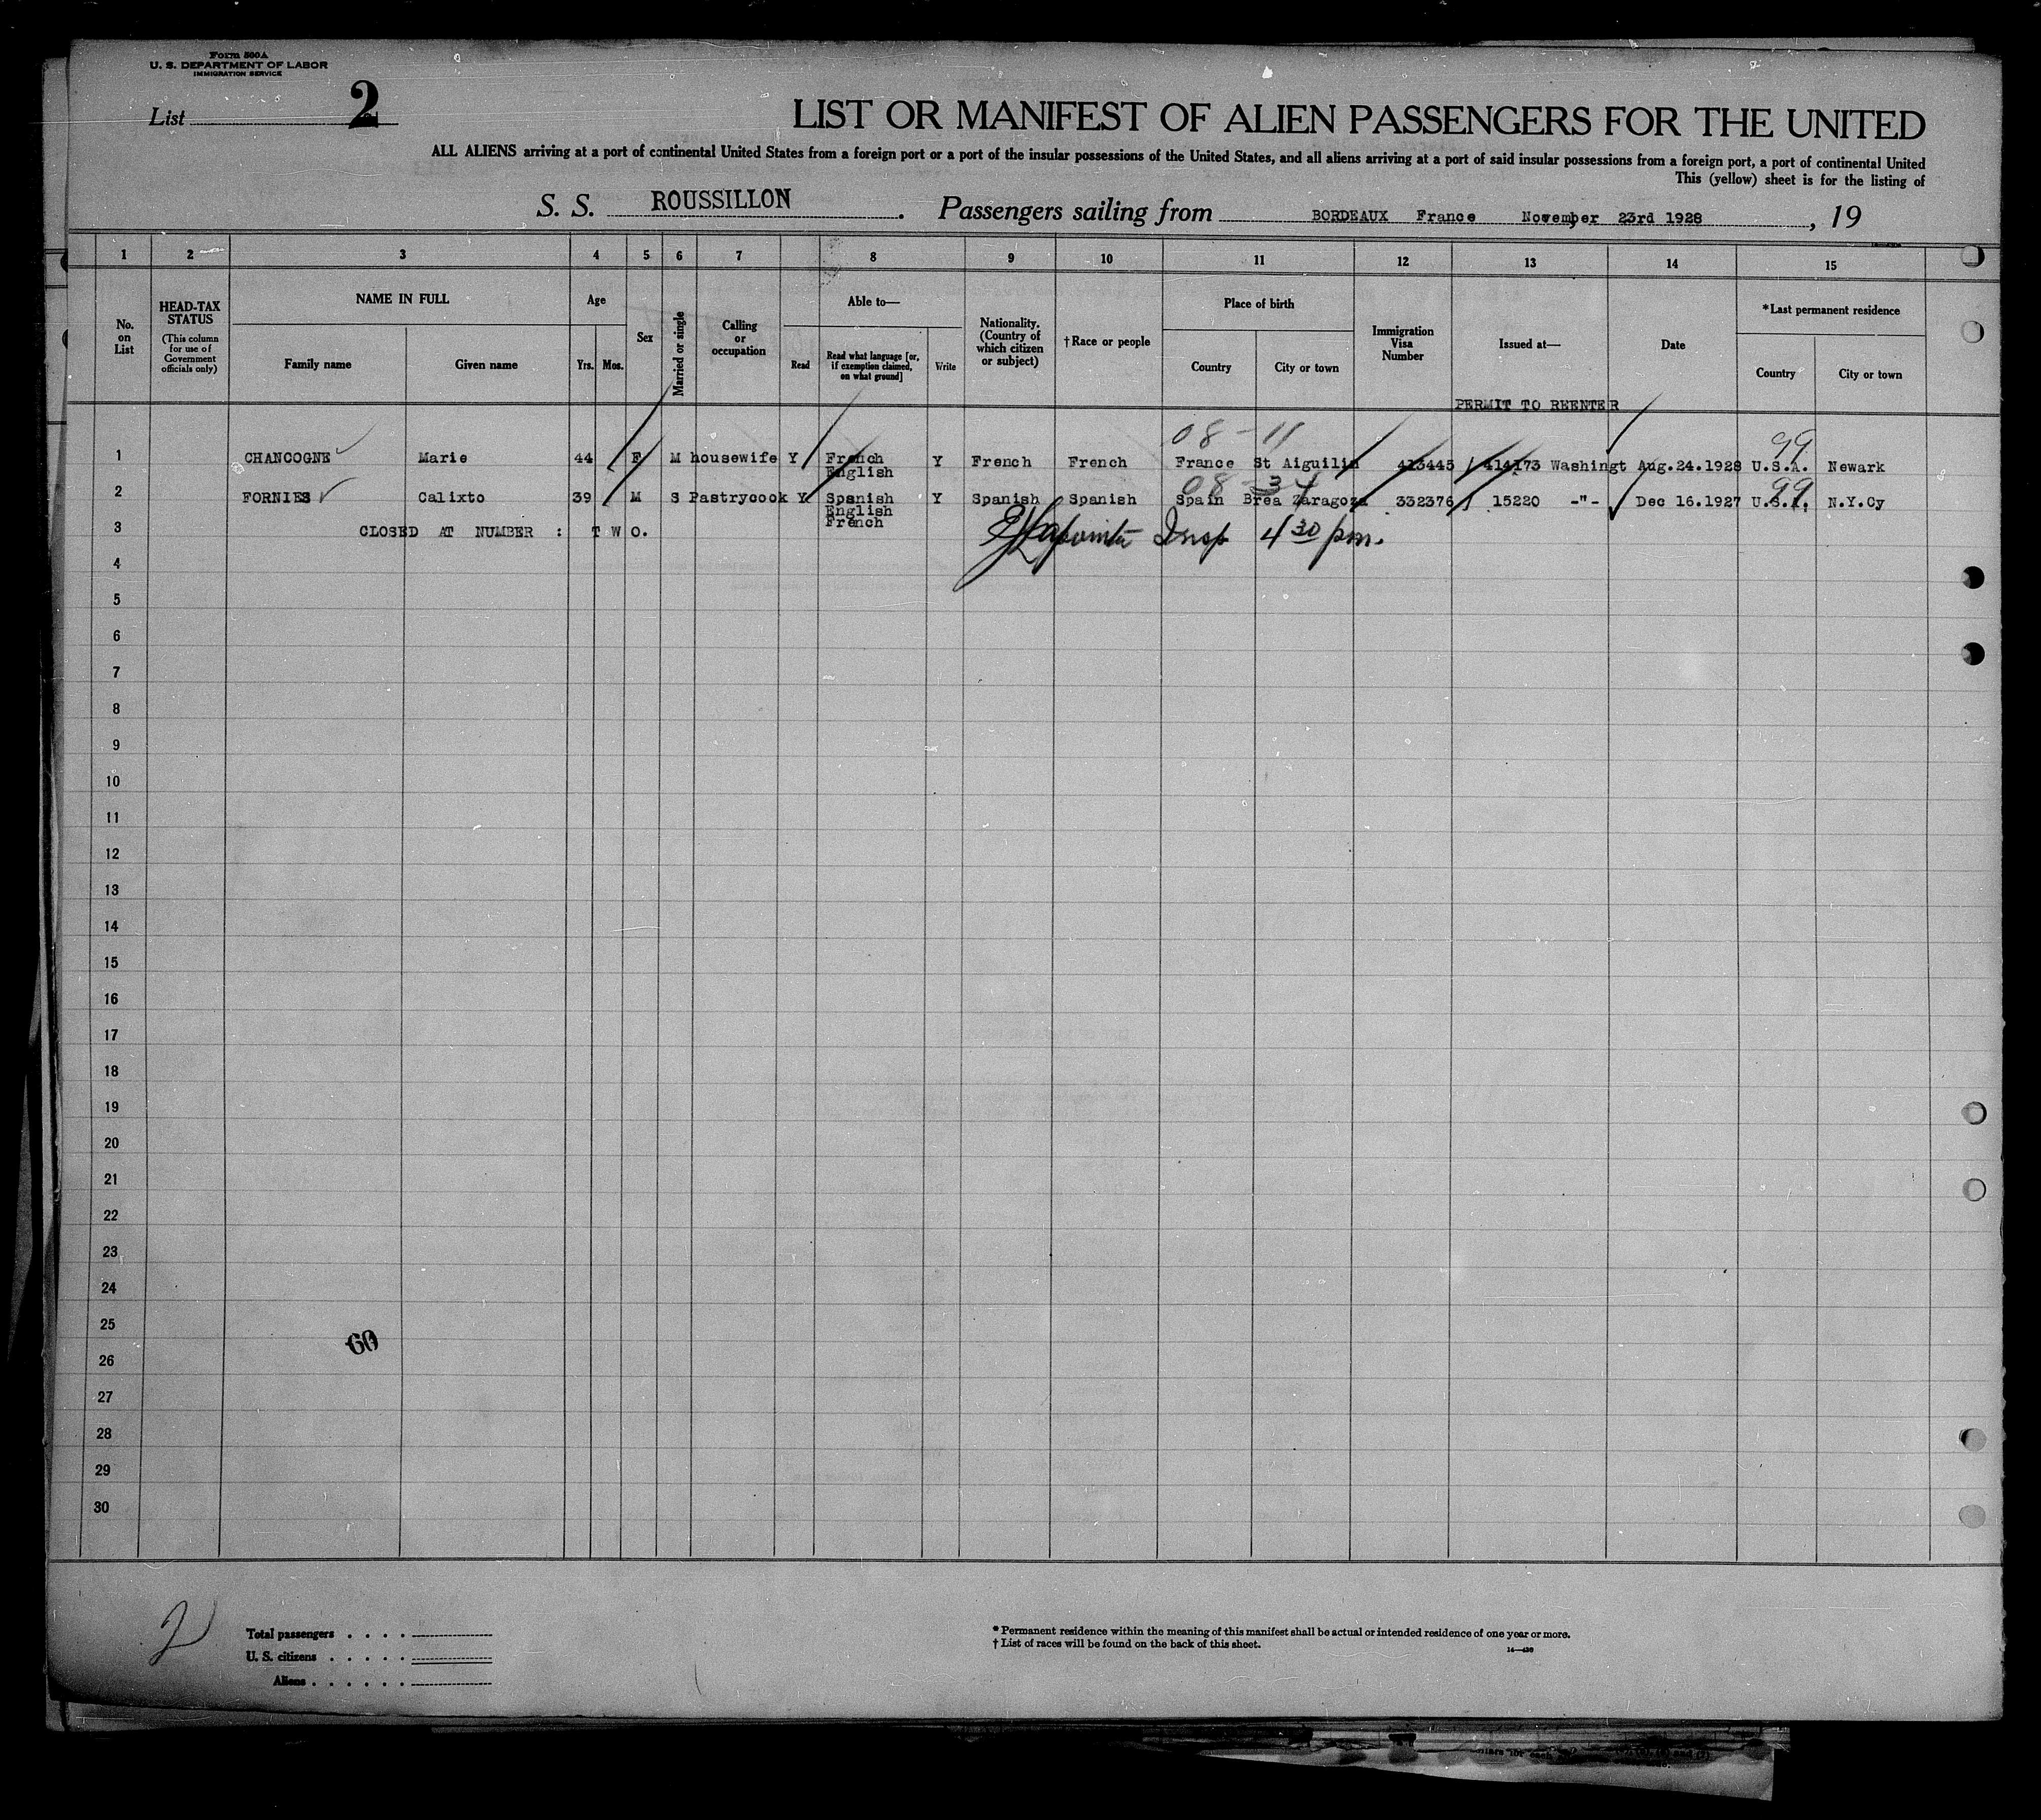 Form 500A
U. S. DEPARTMENT OF LABOR
IMMIGRATION SERVICE
List 2
LIST OR MANIFEST OF ALIEN PASSENGERS FOR THE UNITED
ALL ALIENS arriving at a port of continental United States from a foreign port or a port of the insular possessions of the United States, and all aliens arriving at a port of said insular possessions from a foreign port, a port of continental United
This (yellow) sheet is for the listing of
S. S. ROUSSILLON. Passengers sailing from BORDEAUX France November 23rd 1928, 19
1 2 3 4 5 6 7 8 9 10 11 12 13 14 15
No. on List
HEAD-TAX STATUS
(This column for use of Government officials only)
NAME IN FULL
Family name Given name
Age
Yrs. Mos.
Sex
Married or single
Calling or occupation
Able to—
Read
Read what language [or, if exemption claimed, on what ground]
Write
Nationality. (Country of which citizen or subject)
†Race or people
Place of birth
Country City or town
Immigration Visa Number
Issued at—
Date
*Last permanent residence
Country City or town
PERMIT TO REENTER
08-11 99
1 CHANCOGNE Marie 44 F M housewife Y French Y French French France St Aiguilin 413445 / 414173 Washingt Aug.24.1928 U.S.A. Newark
English
08-34 99
2 FORNIES Calixto 39 M S Pastrycook Y Spanish Y Spanish Spanish Spain Brea Zaragoza 332376 / 15220 -"- Dec 16.1927 U.S.A. N.Y.Cy
English
French
3 CLOSED AT NUMBER : T W O. Insp 4 30 pm.
4
5
6
7
8
9
10
11
12
13
14
15
16
17
18
19
20
21
22
23
24
25
60
26
27
28
29
30
2
Total passengers . . . .
U. S. citizens . . . . .
Aliens . . . . . .
* Permanent residence within the meaning of this manifest shall be actual or intended residence of one year or more.
† List of races will be found on the back of this sheet.
14—430